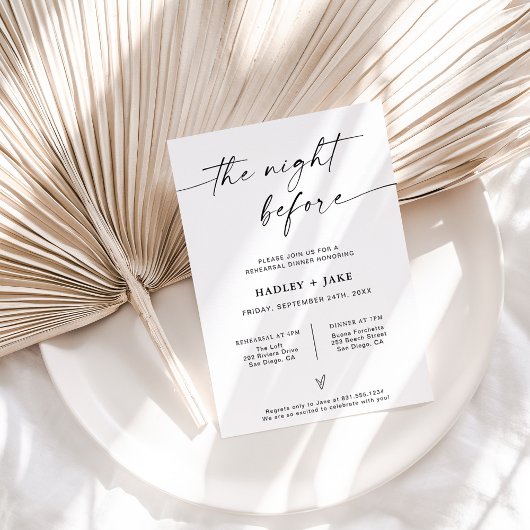 the night
before
PLEASE JOIN US FOR A
REHEARSAL DINNER HONORING
HADLEY + JAKE
FRIDAY, SEPTEMBER 24TH, 20XX
REHEARSAL AT 4PM
The Loft
292 Riviera Drive
San Diego, CA
DINNER AT 7PM
Buona Forchetta
259 Beech Street
San Diego, CA
Regrets only to Jane at 831.555.1234
We are so excited to celebrate with you!